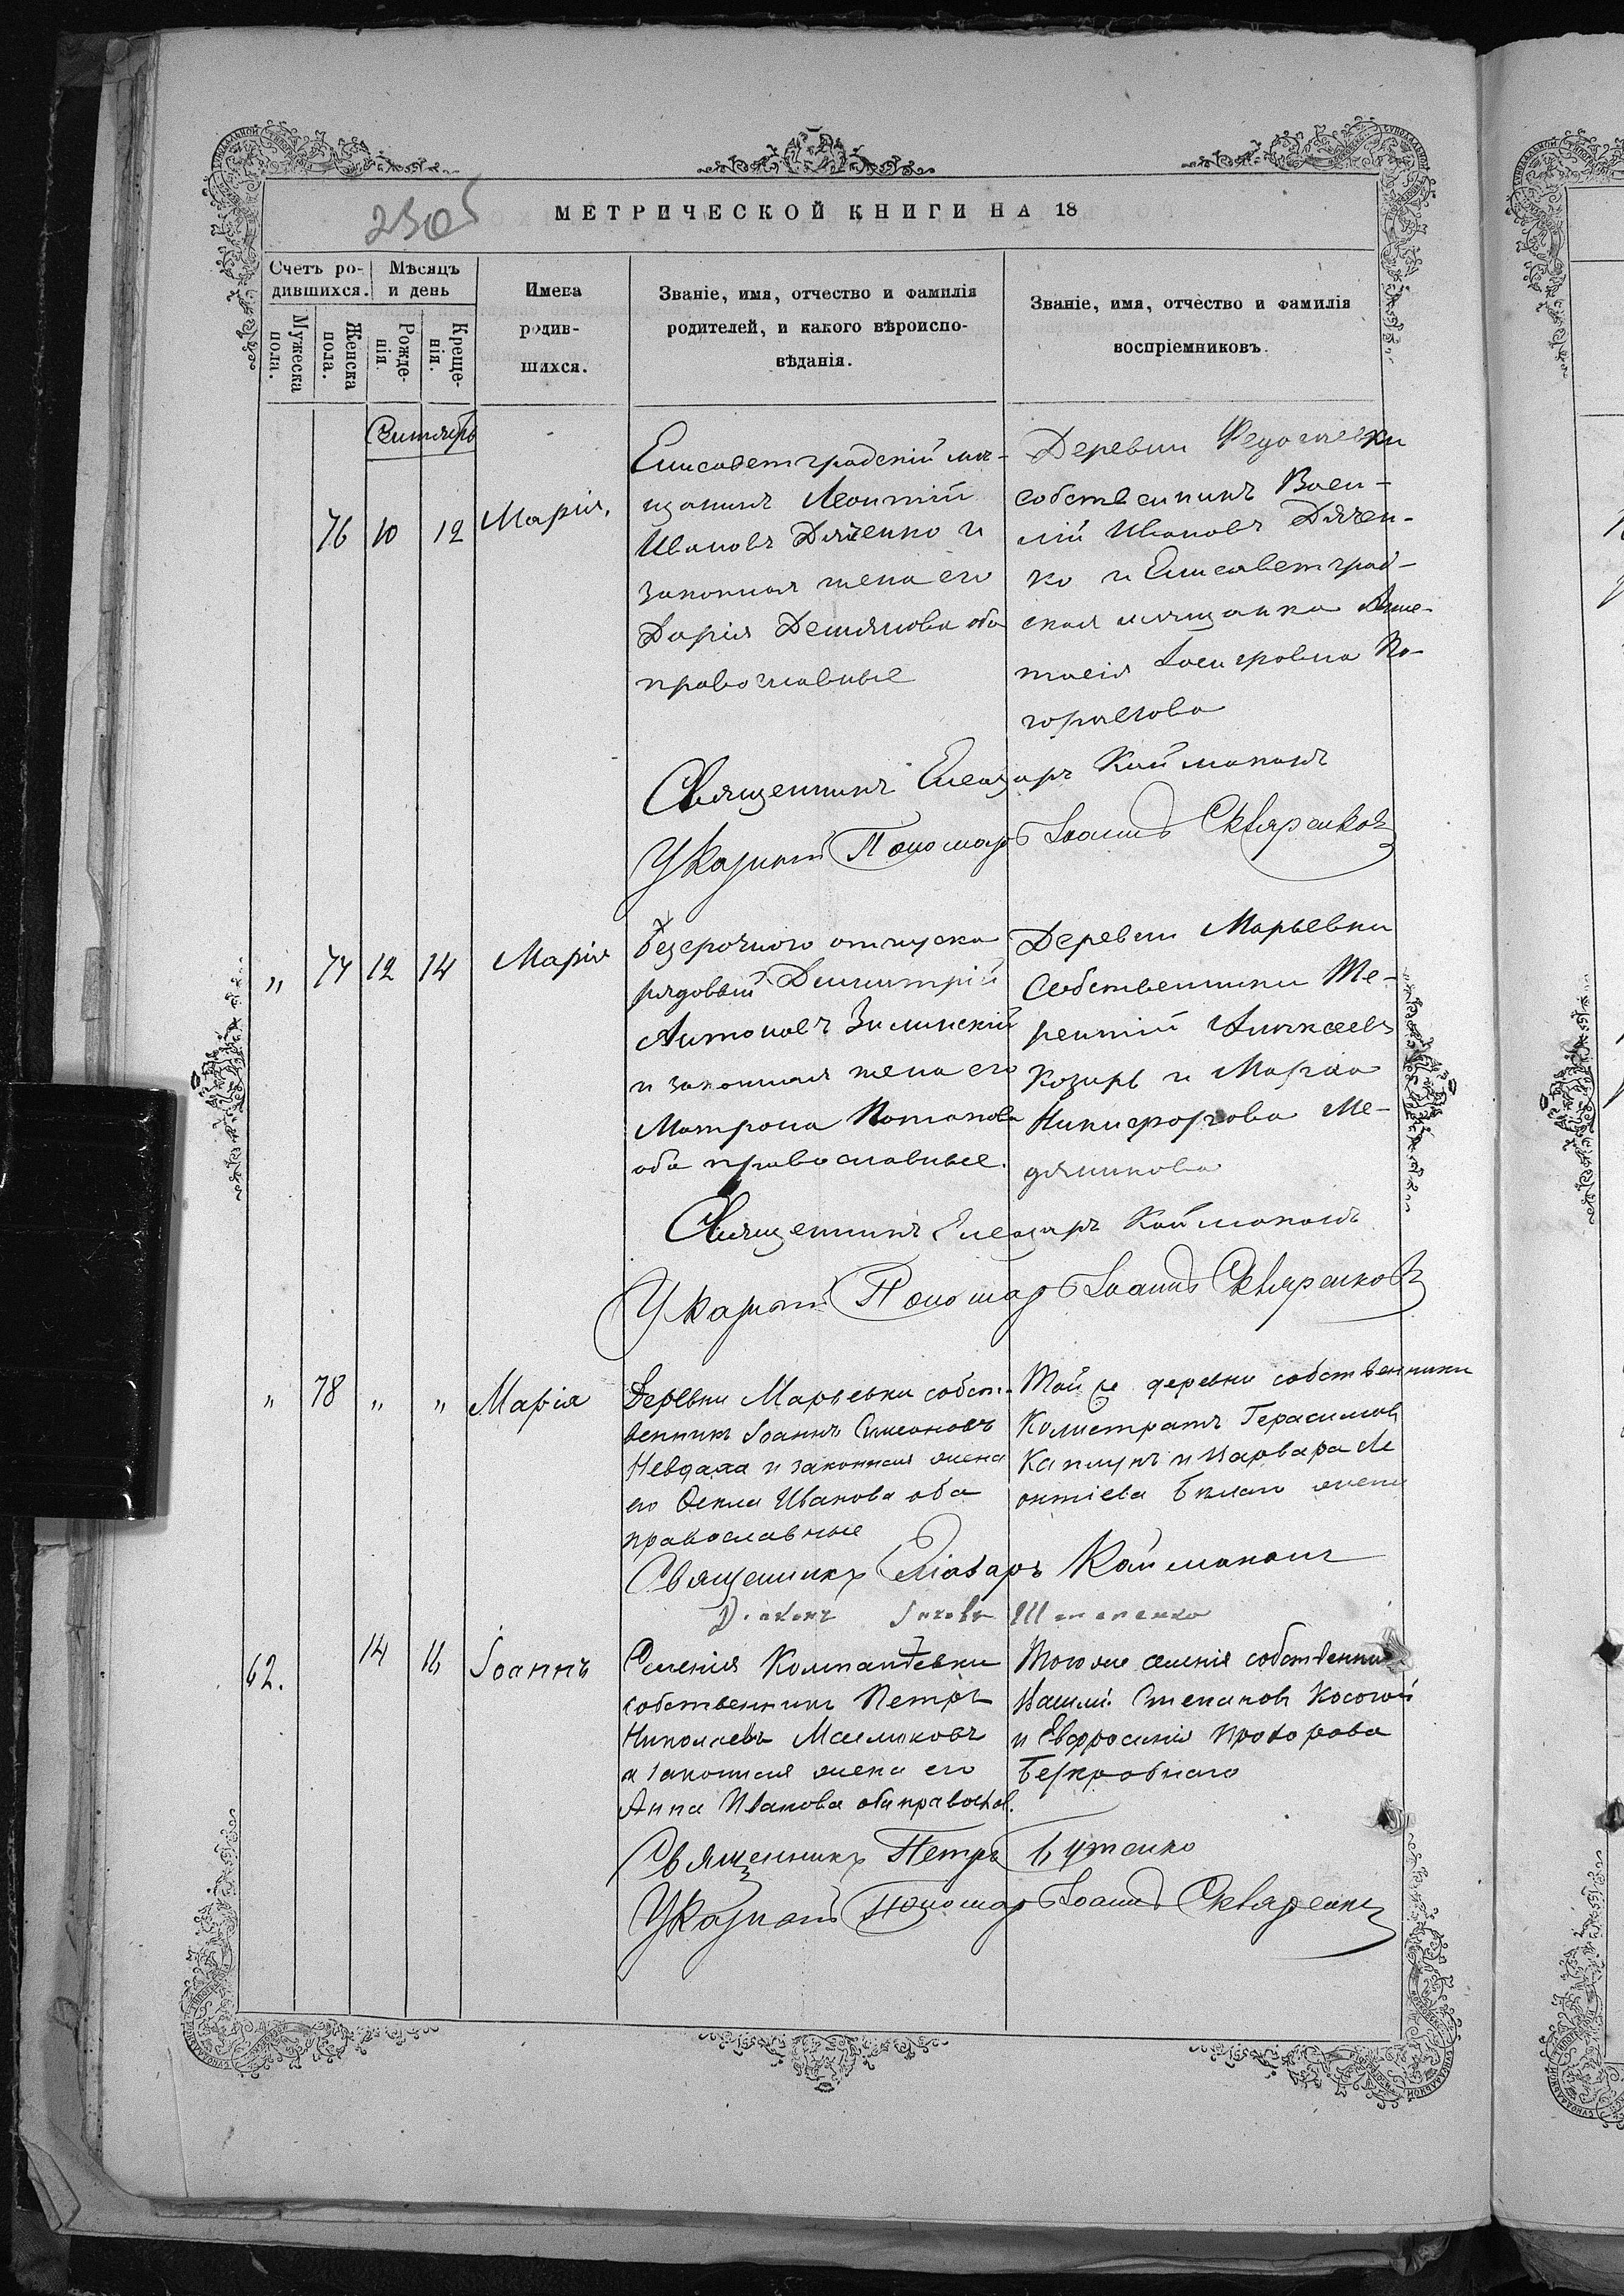 МЕТРИЧЕСКОЙ КНИГИ НА 18
Счетъ ро-
дившихся.
Мѣсяцъ
и день
Мужеска
пола.
Женска
пола.
Рожде-
нія.
Креще-
нія.
Имена
родив-
шихся.
Званіе, имя, отчество и фамилія
родителей, и какого вѣроиспо-
вѣданія.
Званіе, имя, отчество и фамилія
воспріемниковъ.
Сентябрь
76 10 12 Марія.
Елисаветградскій мѣ-
щанинъ Леонтій
Ивановъ Дяченко и
законная жена его
Дарія Демянова оба
православные
Деревни Федотьевки
собственникъ Васи-
лій Ивановъ Дячен-
ко и Елисаветград-
ская мѣщанка
Іосифовна По-
горѣлова
Священникъ Елеазаръ Каймаканъ
Указный Пономарь Іоаннъ Скляренковъ
" 77 12 14 Марія
безсрочного отпуска
рядовый Димитрій
Антоновъ Зилинскій
и законная жена его
Матрона Потапова
оба православные.
Деревни Марьевки
Собственники Те-
рентій Алексеевъ
Козырь и Марія
Никифорова Ме-
дяникова
Священникъ Елеазаръ Каймаканъ
Указный Пономарь Іоаннъ Скляренковъ
" 78 " " Марія
Деревни Марьевки собст-
венникъ Іоаннъ Симеоновъ
Невдаха и законная жена
его Өекла Иванова оба
православные
Той же деревни собственники
Калистратъ Герасимовъ
Каплунъ и Варвара Ле
онтіева жена
Священникъ Еліазаръ Каймаканъ
Діаконъ Іаковъ
62. 14 16 Іоаннъ
Селенія Компанѣевки
собственникъ Петръ
Николаевъ Маслюковъ
и законная жена его
Анна Иванова оба правосл.
Того же селенія собственникъ
Василій Степановъ Косогой
и Евфросинія Прохорова
Безкровнаго
Священникъ Петръ Бутенко
Указный Пономарь Іоаннъ Скляренко